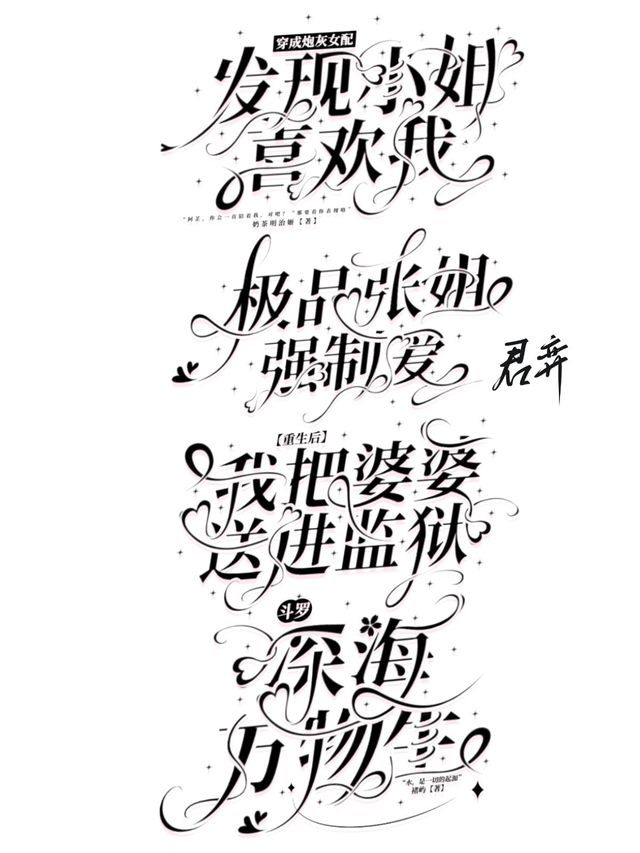 穿成炮灰女配
发现小姐
喜欢我
“阿芷，你会一直陪着我，对吧？”“那要看你表现咯”
奶茶明治姬【著】
极品张姐
强制爱
君弈
【重生后】
我把婆婆
送进监狱
斗罗
深海
万物生
“水，是一切的起源”
褚屿【著】